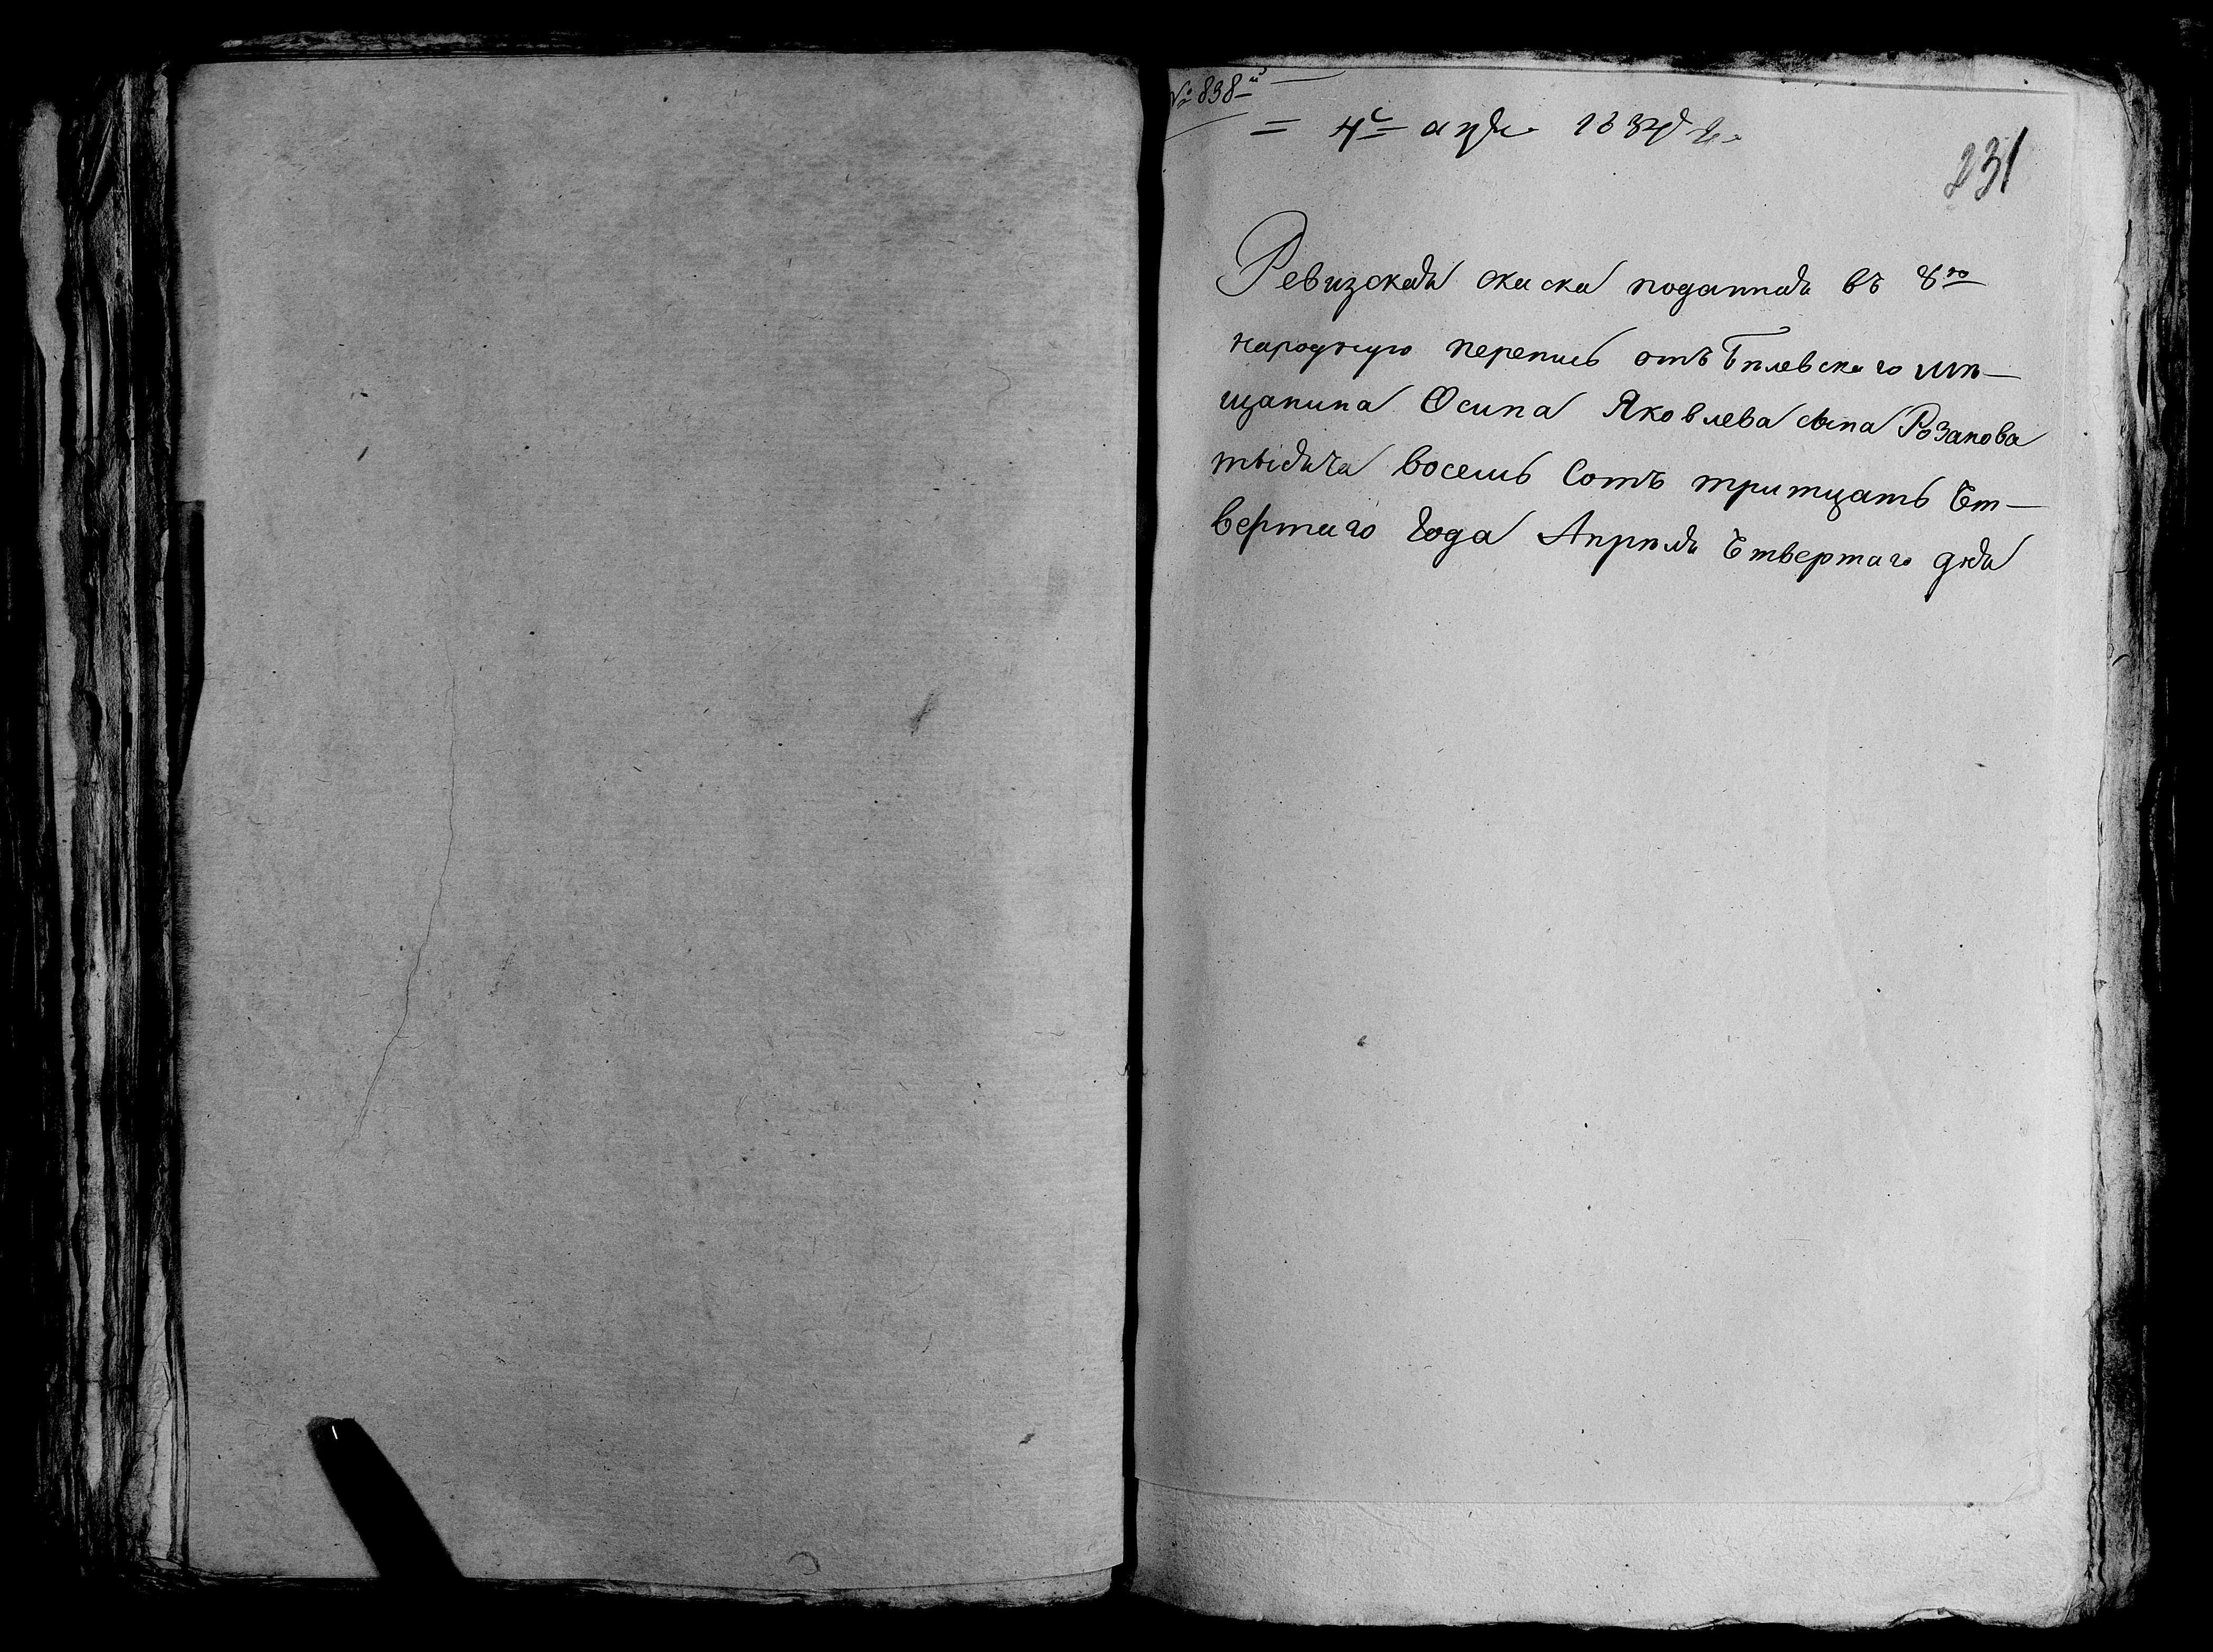 № 838й
= 4е апре 1834 г.
231
Ревизская скаска поданная въ 8ю
народную перепись отъ Белевскаго мѣ-
щанина Осипа Яковлева сына Розанова
тысяча восемь сотъ тритцать чет-
вертаго года Апрѣля четвертаго дня